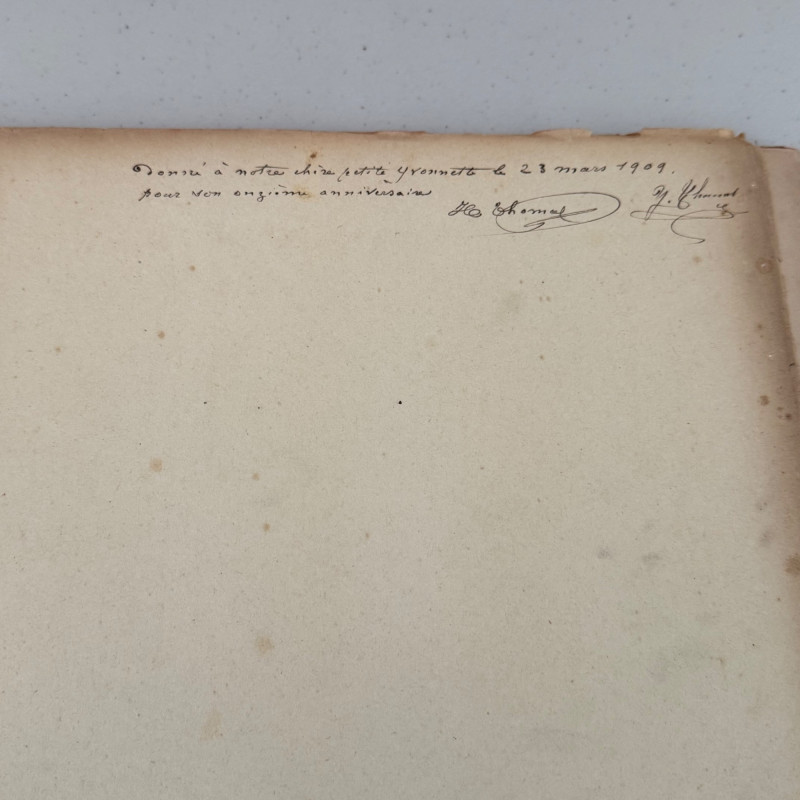 Donné à notre chère petite Yvonnette le 23 mars 1909.
pour son onzième anniversaire
H Thomas Y. Thomas